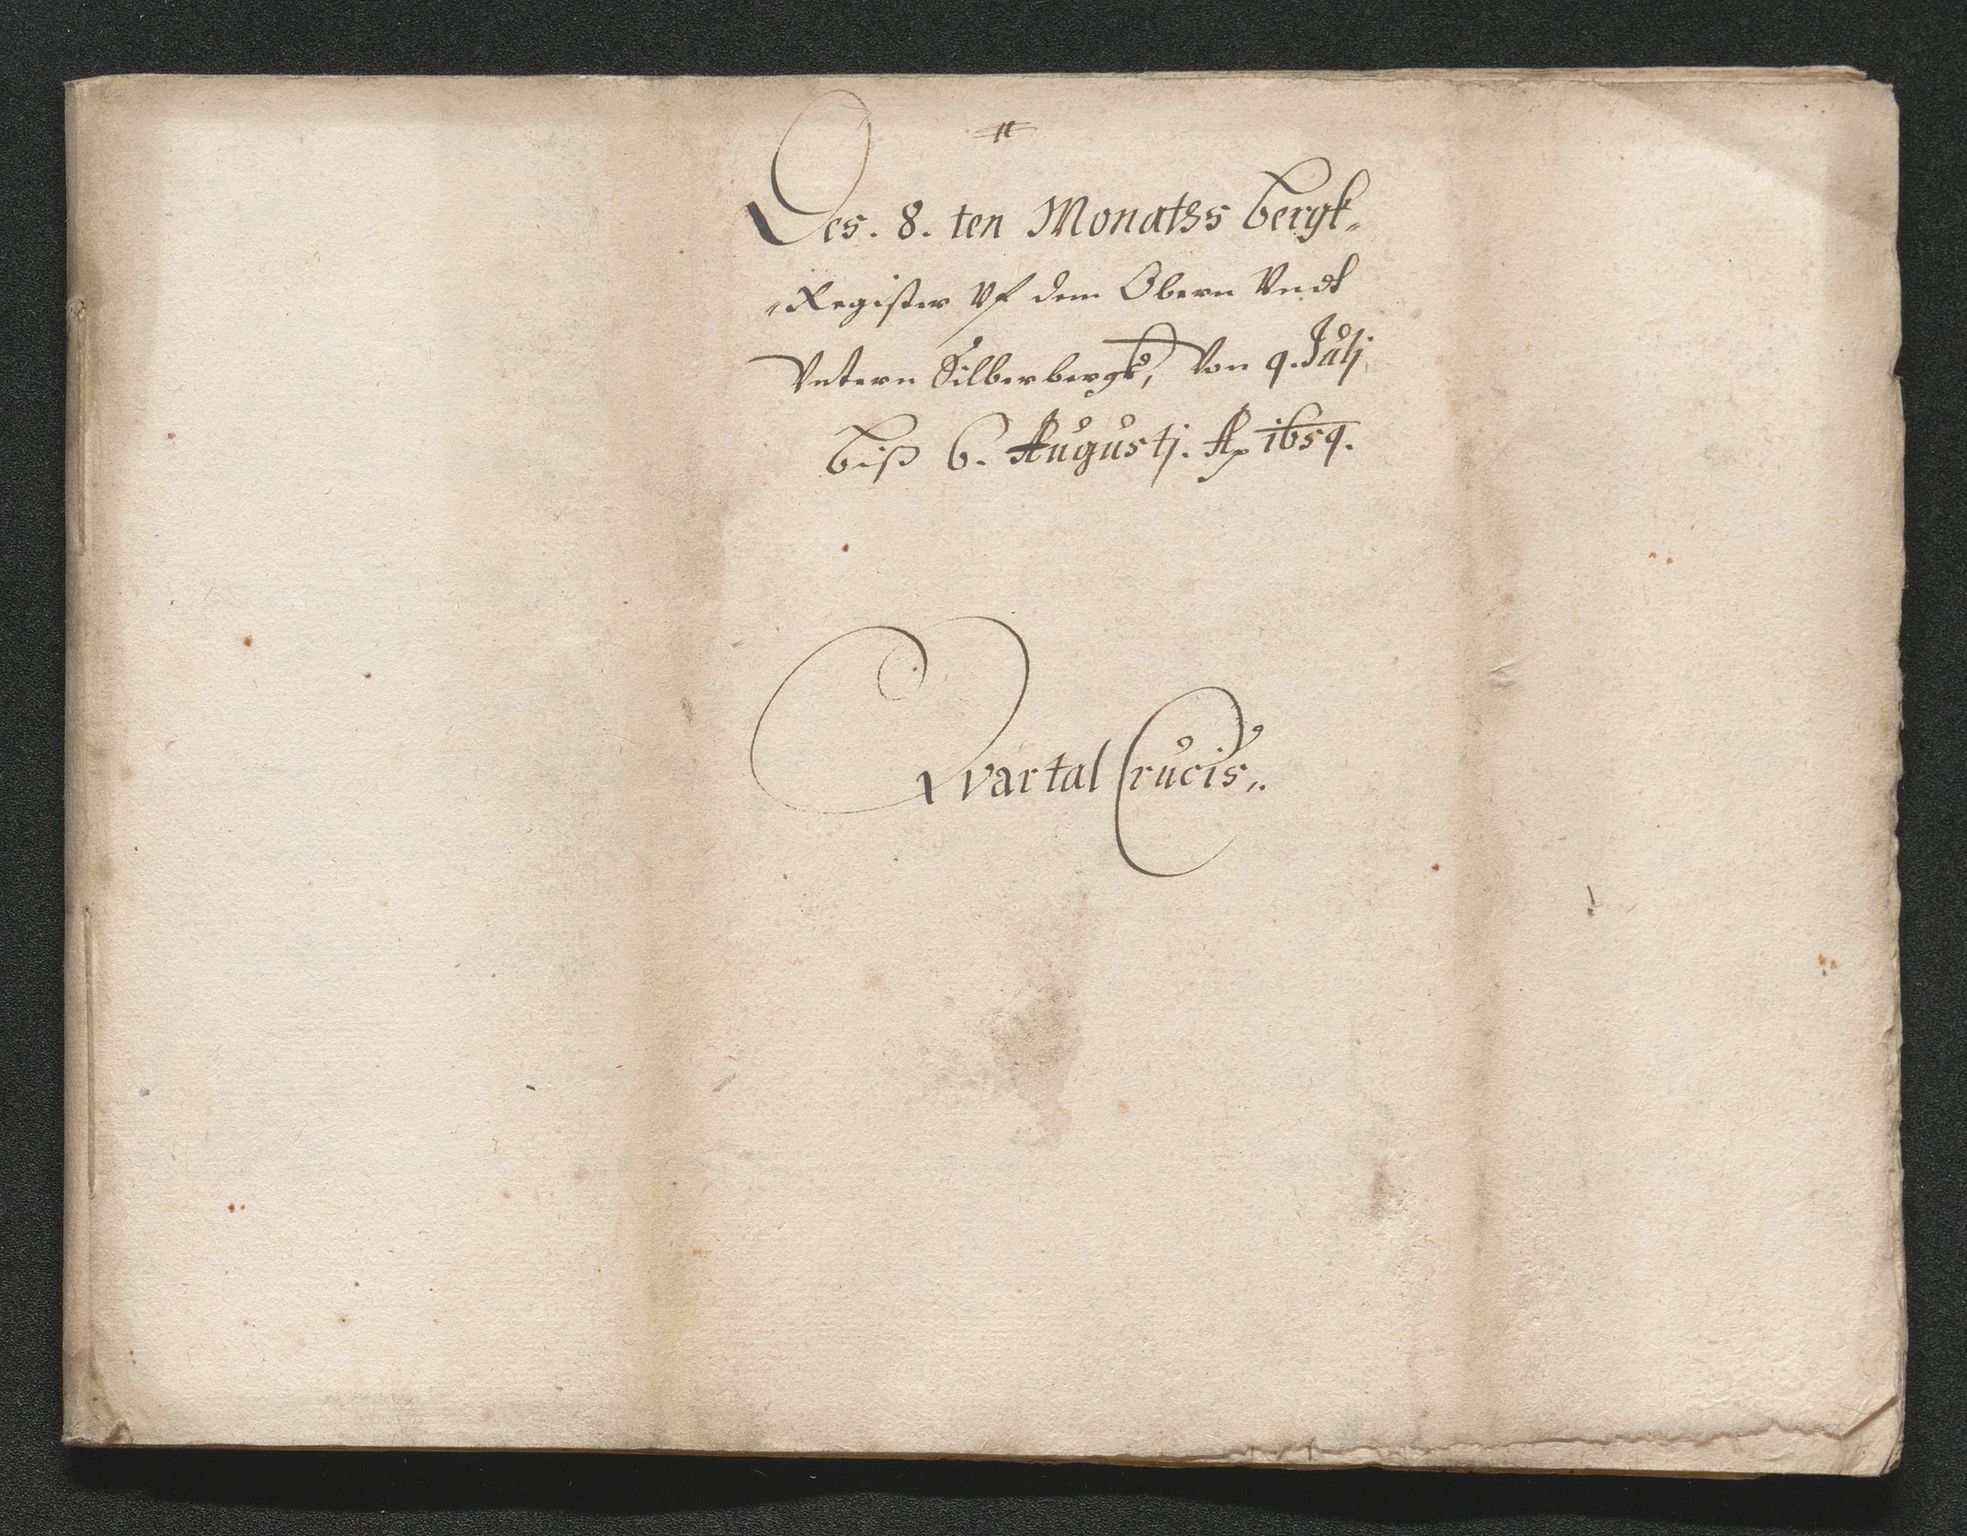 Des. 8. ten Monaths bergk„
„Register Vf dem Obern Vndt
Vntern Silberbergk, Von 9. Julj
biß 6. Augustj. Ao 1659.
Qvartal Crucis„.